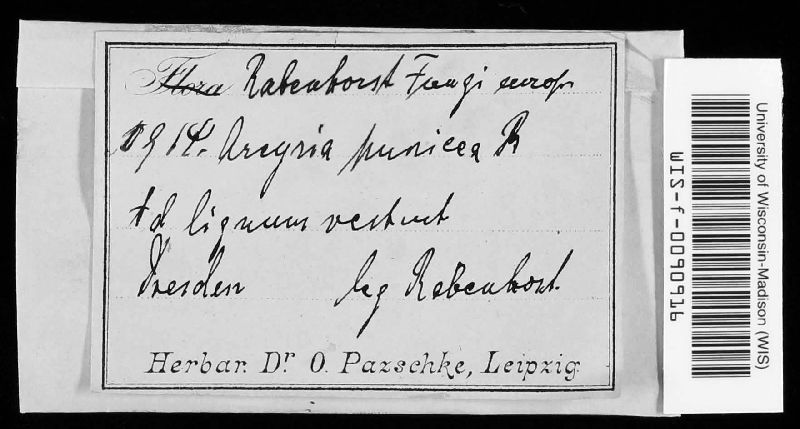 Flora Rabenhorst Fungi europ
1914. Arcyria punicea R
Ad lignum vetust
Dresden leg Rabenhorst.
Herbar. Dr. O. Pazschke, Leipzig
University of Wisconsin-Madison (WIS)
WIS-f-0090916